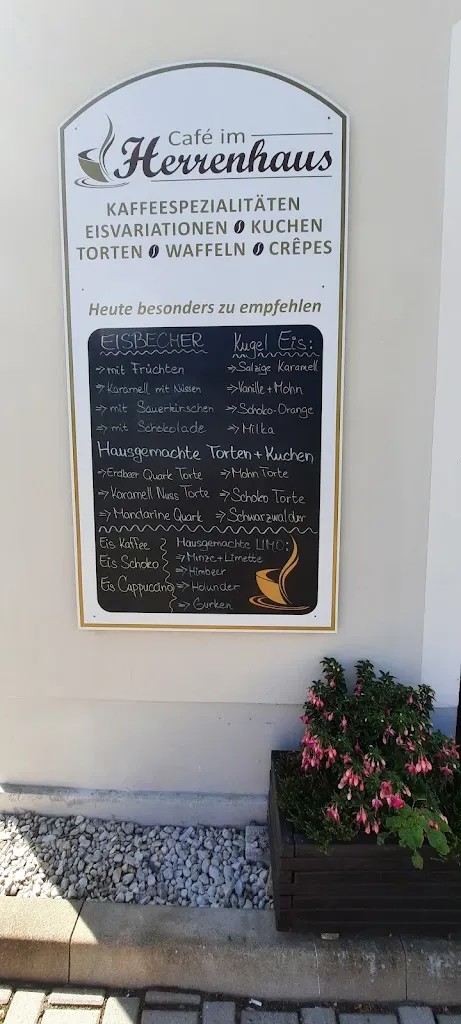 Café im
Herrenhaus
KAFFEESPEZIALITÄTEN
EISVARIATIONEN KUCHEN
TORTEN WAFFELN CRÊPES
Heute besonders zu empfehlen
EISBECHER
⇒ mit Früchten
⇒ Karamell mit Nüssen
⇒ mit Sauerkirschen
⇒ mit Schokolade
Kugel Eis:
⇒ Salzige Karamell
⇒ Vanille + Mohn
⇒ Schoko-Orange
⇒ Milka
Hausgemachte Torten + Kuchen
⇒ Erdbeer Quark Torte
⇒ Karamell Nuss Torte
⇒ Mandarine Quark
⇒ Mohn Torte
⇒ Schoko Torte
⇒ Schwarzwälder
Eis Kaffee
Eis Schoko
Eis Cappuccino
Hausgemachte LIMO:
⇒ Minze + Limette
⇒ Himbeer
⇒ Holunder
⇒ Gurken